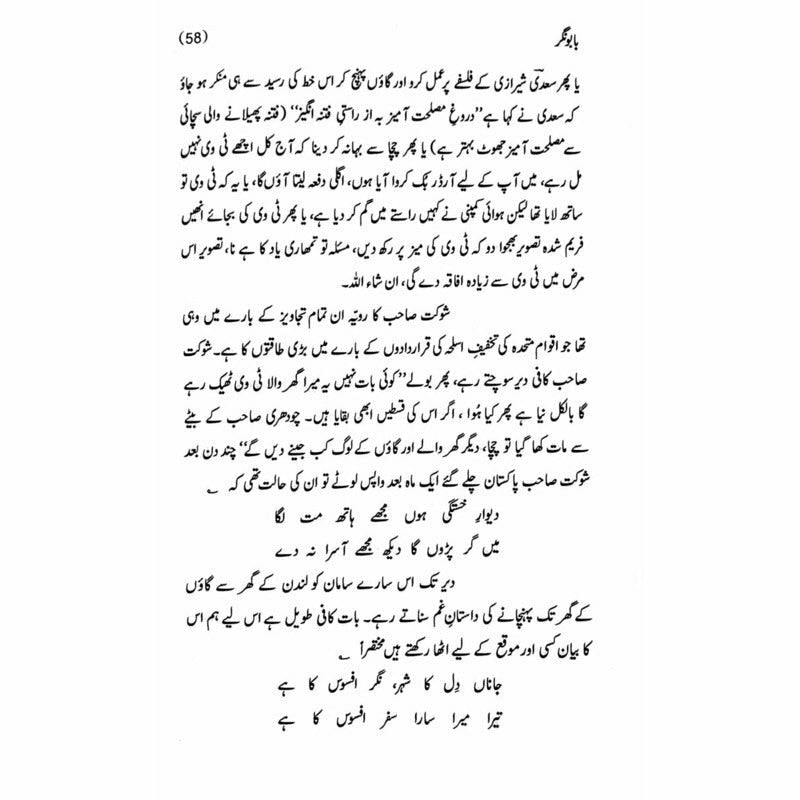 بابونگر (58)
یا پھر سعدیؔ شیرازی کے فلسفے پر عمل کرو اور گاؤں پہنچ کر اس خط کی رسید سے ہی منکر ہو جاؤ
کہ سعدی نے کہا ہے ’’دروغِ مصلحت آمیز بہ از راستیِ فتنہ انگیز‘‘ (فتنہ پھیلانے والی سچائی
سے مصلحت آمیز جھوٹ بہتر ہے) یا پھر چچا سے بہانہ کر دینا کہ آج کل اچھے ٹی وی نہیں
مل رہے، میں آپ کے لیے آرڈر بُک کروا آیا ہوں، اگلی دفعہ لیتا آؤں گا، یا یہ کہ ٹی وی تو
ساتھ لایا تھا لیکن ہوائی کمپنی نے کہیں راستے میں گم کر دیا ہے، یا پھر ٹی وی کی بجائے انھیں
فریم شدہ تصویر بھجوا دو کہ ٹی وی کی میز پر رکھ دیں، مسئلہ تو تمھاری یاد کا ہے نا، تصویر اس
مرض میں ٹی وی سے زیادہ افاقہ دے گی، ان شاء اللہ۔
شوکت صاحب کا رویّہ ان تمام تجاویز کے بارے میں وہی
تھا جو اقوام متحدہ کی تخفیفِ اسلحہ کی قراردادوں کے بارے میں بڑی طاقتوں کا ہے۔ شوکت
صاحب کافی دیر سوچتے رہے، پھر بولے ’’کوئی بات نہیں یہ میرا گھر والا ٹی وی ٹھیک رہے
گا بالکل نیا ہے پھر کیا ہُوا ، اگر اس کی قسطیں ابھی بقایا ہیں۔ چودھری صاحب کے بیٹے
سے مات کھا گیا تو چچا، دیگر گھر والے اور گاؤں کے لوگ کب جینے دیں گے‘‘ چند دن بعد
شوکت صاحب پاکستان چلے گئے ایک ماہ بعد واپس لوٹے تو ان کی حالت تھی کہ ؂
دیوارِ خستگی ہوں مجھے ہاتھ مت لگا
میں گر پڑوں گا دیکھ مجھے آسرا نہ دے
دیر تک اس سارے سامان کو لندن کے گھر سے گاؤں
کے گھر تک پہنچانے کی داستانِ غم سناتے رہے۔ بات کافی طویل ہے اس لیے ہم اس
کا بیان کسی اور موقع کے لیے اٹھا رکھتے ہیں مختصراً ؂
جاناں دِل کا شہر، نگر افسوس کا ہے
تیرا میرا سارا سفر افسوس کا ہے